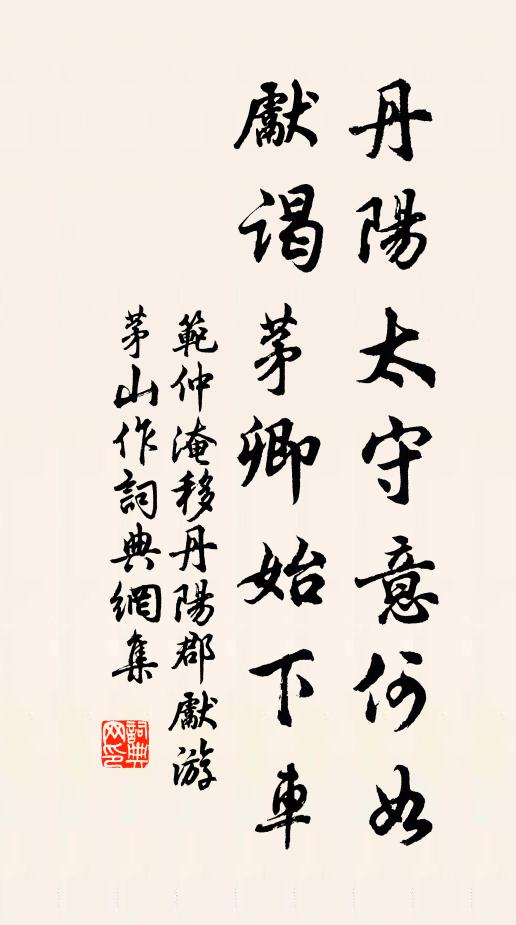 丹陽太守意何如
獻謁茅卿始下車
範仲淹移丹陽郡獻游
茅山作詞典網集
詞典
网印